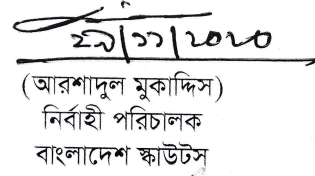 ২৯/১১/২০২০
(আরশাদুল মুকাদ্দিস)
নির্বাহী পরিচালক
বাংলাদেশ স্কাউটস